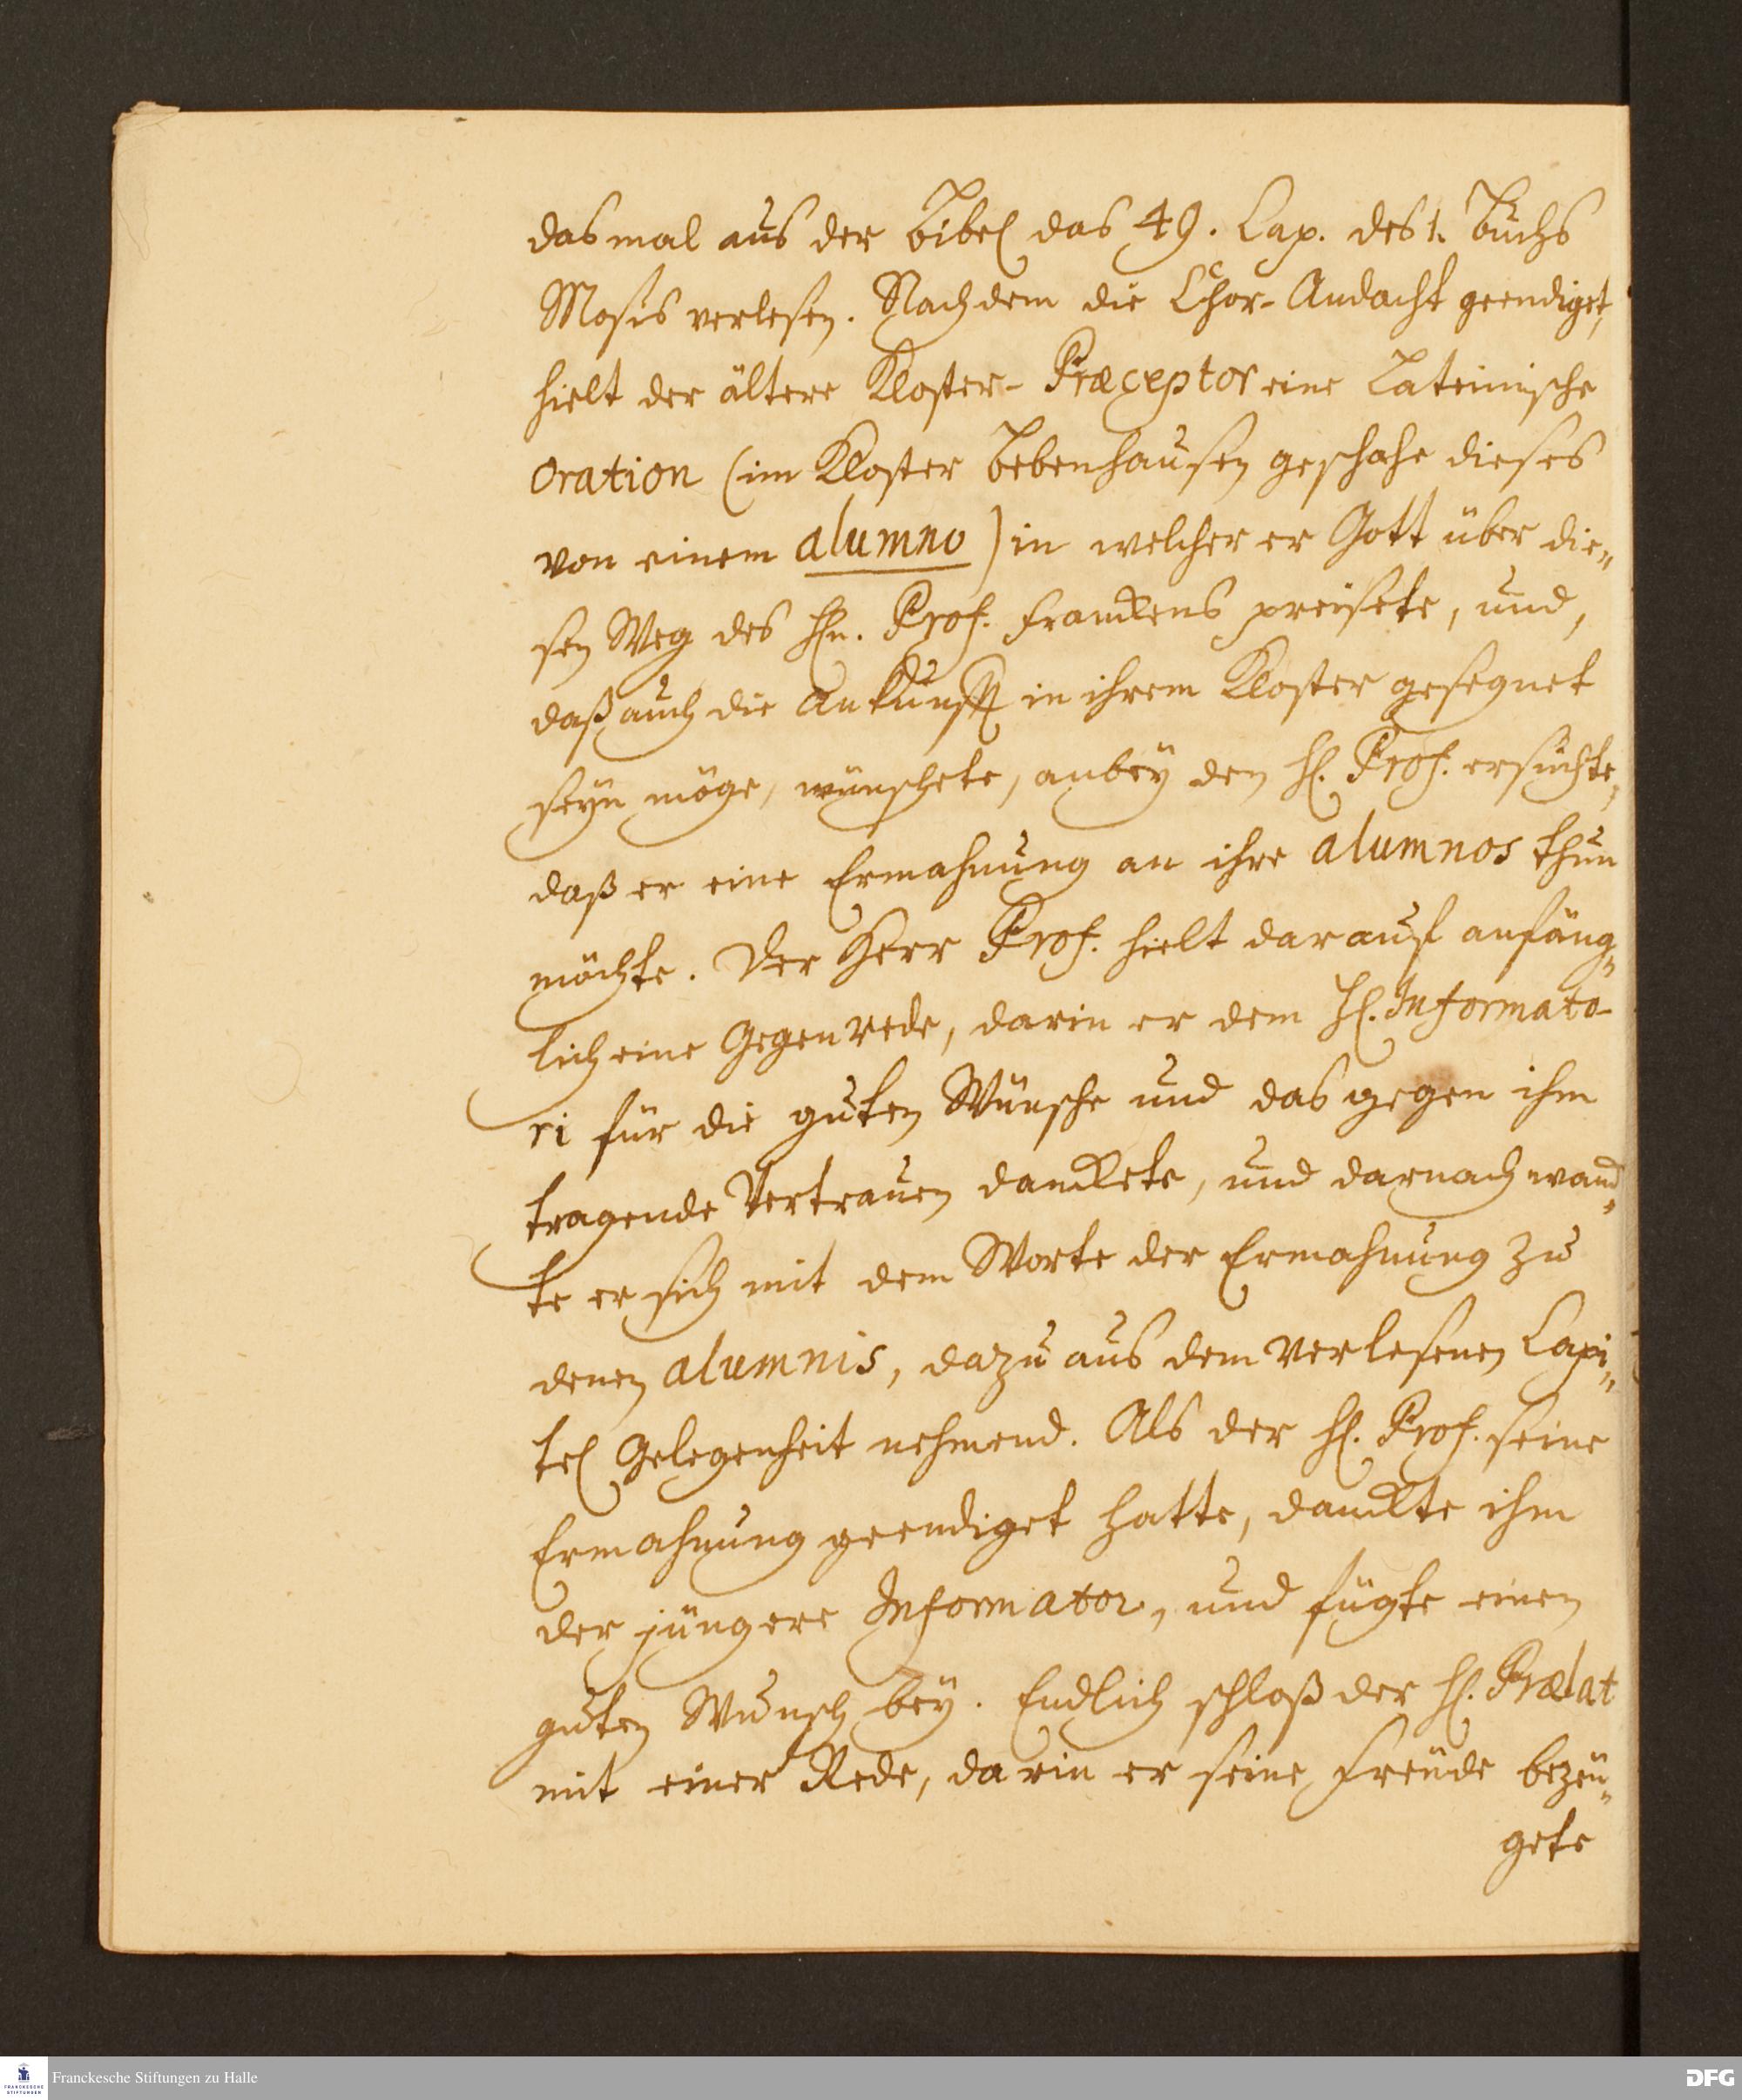 dasmal aus der Bibel das 49. Cap. des 1. Buchs
Mosis verlesen. Nachdem die Chor-Andacht geendiget,
hielt der ältere Kloster-Præceptor eine Lateinische
Oration (im Kloster Bebenhausen geschahe dieses
von einem alumno) in welcher er Gott über die„
sen Weg des Hn. Prof. Franckens preisete, und,
daß auch die Ankunfft in ihrem Kloster gesegnet
seyn möge, wünschete, anbey den H. Prof. ersuchte,
daß er eine Ermahnung an ihre alumnos thun
möchte. Der Herr Prof. hielt darauf anfäng„
lich eine Gegenrede, darin er dem H. Informato-
ri für die guten Wünsche und das gegen ihm
tragende Vertrauen danckete, und darnach wand„
te er sich mit dem Worte der Ermahnung zu
denen alumnis, dazu aus dem verlesenen Capi„
tel Gelegenheit nehmend. Als der H. Prof. seine
Ermahnung geendiget hatte, danckte ihm
der jüngere Informator, und fügte einen
guten Wunsch bey. Endlich schloß der H. Prælat
mit einer Rede, darin er seine Freude bezeu„
gete
Franckesche Stiftungen zu Halle
FRANCKESCHE STIFTUNGEN
DFG